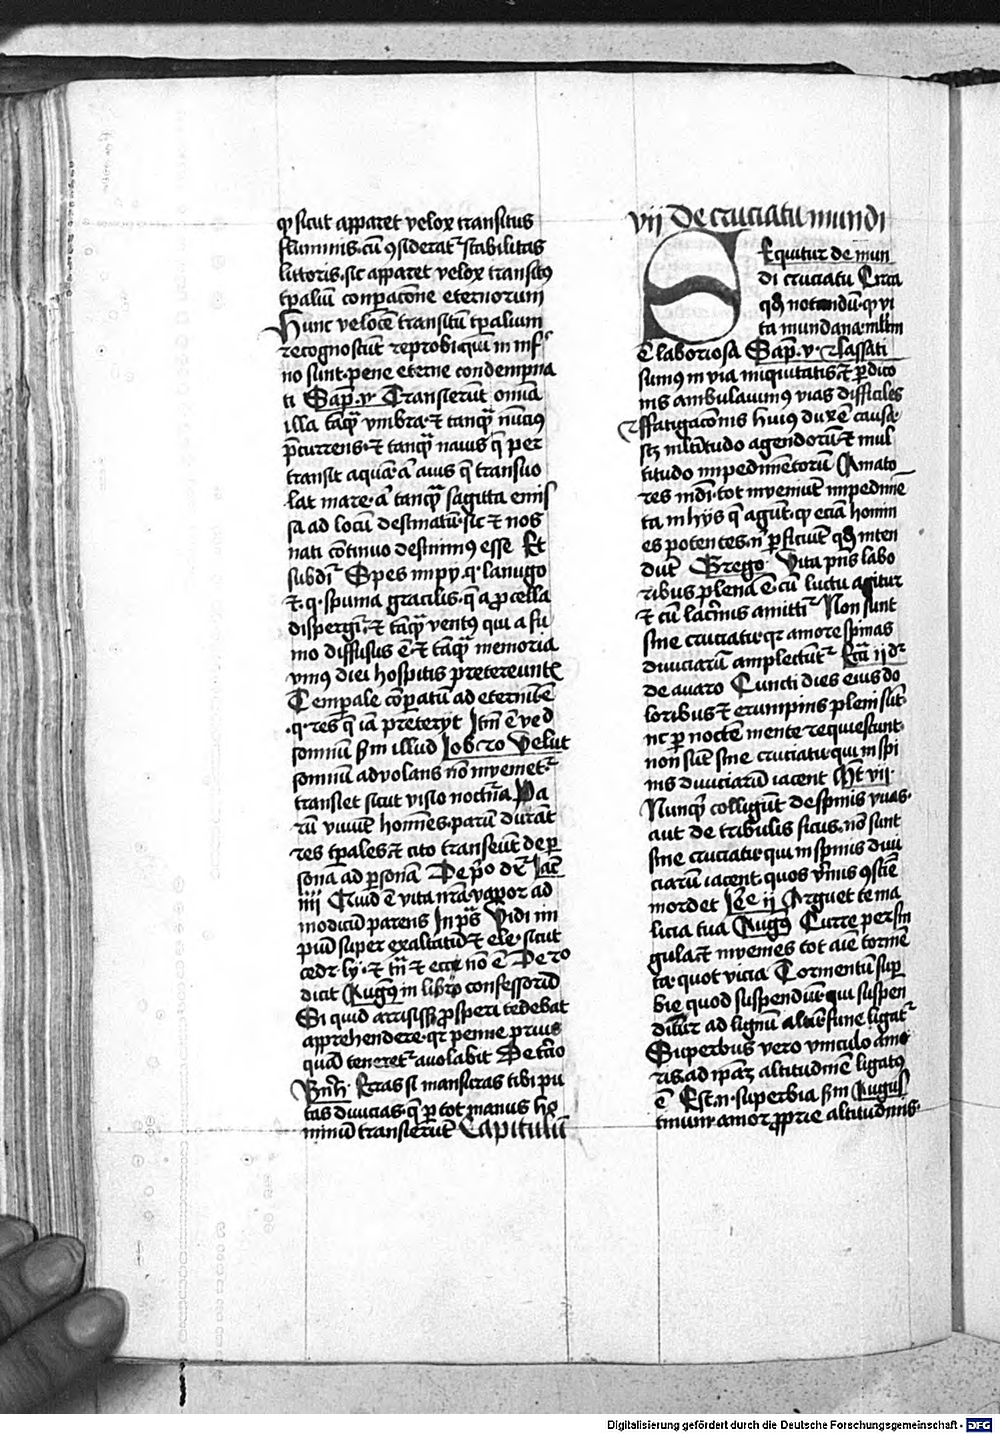 qͥ sicut apparet velox transitus
fluminis. cū ꝯsideratͬ stabilitas
littoris. sic apparet velox transitꝰ
tꝑaliū conꝑacōne eternorum
Hunc velocē transitū tꝑalium
recognoscūt reprobi qui in inf̾
no sunt. pene eterne condempna
ti Sap̄. v. Transierūt omīa
illa tāqᷓ vmbra. ⁊ tanqᷓ nūciꝰ
p̄currens. ⁊ tanqᷓ nauis q̄ per
transit aquā. āͭ auis q̄ transuo
lat mare. āͭ tanqᷓ sagitta emis
sa ad locū destinatū. sic ⁊ nos
nati cōtinuo desinimꝰ esse Et
subdiͬ Spes impij. q̄ lanugo
ē. q̄ spuma gracilis. q̄ a ꝓcella
dispergiͬ. ⁊ tāqᷓ ventꝰ qui a fu
mo diffusus ē ⁊ tāqᷓ memoria
vniꝰ diei hospitis pretereuntis
Temꝑale cōꝑatū ad eternitatē
.q. res q̄ iā preterijt Itm̄ ē velud
somniū sm̄ illud Job xo Velut
somniū advolans nō inuenietͬ
transiet sicut visio nocturna Pa
rū viuūt homīes. parū durāt
res tꝑales. ⁊ cito transeūt de ꝑ
sonā ad ꝑsonā De pͥo drͬ Jac̄
iiii Quid ē vita nr̄a. vapor ad
modicū parens In pͣs Vidi im
piū super exaltatū ⁊ ele. sicut
cedr. ly. ⁊ tn̄ ⁊ ecce nō ē De xo
dicit Augꝰ in libro confessionū
Si quid arrisisset ꝓsperi tedebat
apprehendere. qr penne prius
quā teneretͬ auolabit De tͨio
Bn̄h. Erras si mansuras tibi pu
tas diuicias. q̄ ꝑ tot manus ho
minū transierūt Capitulū
vij De cruciatu mundi
Sequitur de mun
di cruciatu Circa
qd̄ notandū. qͥ vi
ta mundana. mltm̄
ē laboriosa Sap̄. v. Lassati
sumꝰ in via iniquitatis ⁊ ꝑdico
nis ambulauimꝰ vias difficiles
Et fatigacōnis huiꝰ duxē causa
scꝫ mltitudo agendorū ⁊ mul
titudo impedimētorū Amato
res mūdi. tot inueniūt impedime
ta in hijs q̄ agūt. qͥ eciā homin
es potentes. nͦ ꝑficiūt qd̄ inten
dūt Grego. Vita pn̄s labo
ribus plena ē. cū luctu agitur
⁊ cū lacrimis amittiͬ Non sunt
sine cruciatu. qr amore spinas
diuiciarū amplectūtͬ Ecc̄i ij drͬ
de auaro Cuncti dies eius do
loribus ⁊ erumpnis pleni sūt
nc ꝑ noctē mente requiescunt.
non sūt sine cruciatu. qui in spi
nis diuiciarū iacent Mt̄ vij.
Nunqͥd colligūt de spinis vuas.
aut de tribulis ficus. nō sunt
sine cruciatu. qui in spinis diui
ciarū iacent. quos v̄mis ꝯsciē
mordet Jēē ij Arguet te ma
licia tua Augꝰ Curre per sin
gula. ⁊ inuenies tot aīe tormē
ta. quot vicia Tormentū sup̄
bie quod suspendiū. qui suspen
diūtur ad lignū altū fune ligatͬ
Superbus vero vinculo amo
ris. ad ipaꝫ altitudinē ligatꝰ
ē Est. n. superbia sm̄ Augus
tinum. amor ꝓprie altitudinis.
Digitalisierung gefördert durch die Deutsche Forschungsgemeinschaft - DFG